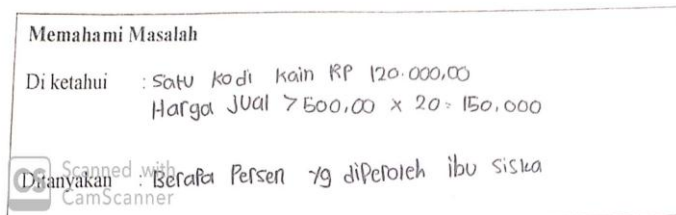 Memahami Masalah
Di ketahui : Satu kodi kain RP 120.000,00
Harga Jual 7500,00 x 20 = 150,000
Ditanyakan : Berapa Persen yg diperoleh ibu siska
CS Scanned with
CamScanner